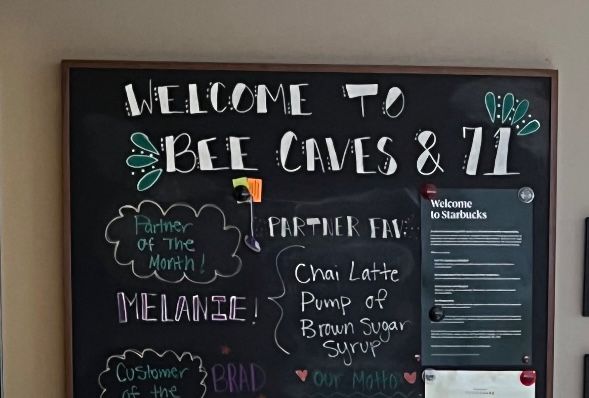 WELCOME TO
BEE CAVES & 71
Partner
of The
Month!
MELANIE!
PARTNER FAV:
Chai Latte
Pump of
Brown Sugar
Syrup
Welcome
to Starbucks
Customer
of the
BRAD
Our Motto